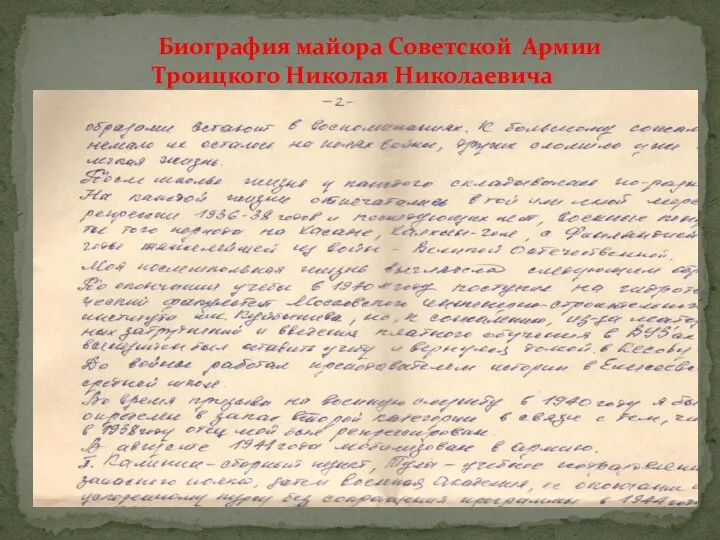 Биография майора Советской Армии
Троицкого Николая Николаевича
-2-
образами встают в воспоминаниях. К большому сожал
немало их осталось на полях войны, других сломила уже
жизнь.
После школы жизнь у каждого складывалась по-разн
На каждой жизни отпечатались в той или иной мере
репрессии 1936-38 годов и последующих лет, военные
того периода на Хасане, Халхин-голе, с Финляндией
годы тяжелейшей из войн - Великой Отечественной.
Моя послешкольная жизнь выглядела следующим обр
По окончании учебы в 1940 году поступил на гидроте
ческий факультет Московского инженерно-строительног
института им. Куйбышева, но, к сожалению, из-за матер
ных затруднений и введения платного обучения в ВУЗах
был оставить учебу и вернулся домой в Кесову
До войны работал преподавателем истории в
средней школе.
Во время призыва на военную службу в 1940 году я был
определен в запас второй категории в связи с тем, что
в 1938 году отец мой был репрессирован.
В августе 1941 года мобилизован в армию.
Г. Калинин - сборный пункт, Тула - учебное подразделение
запасного полка, затем военная Академия, ее окончание
курсу без сокращения программы в 1944 году